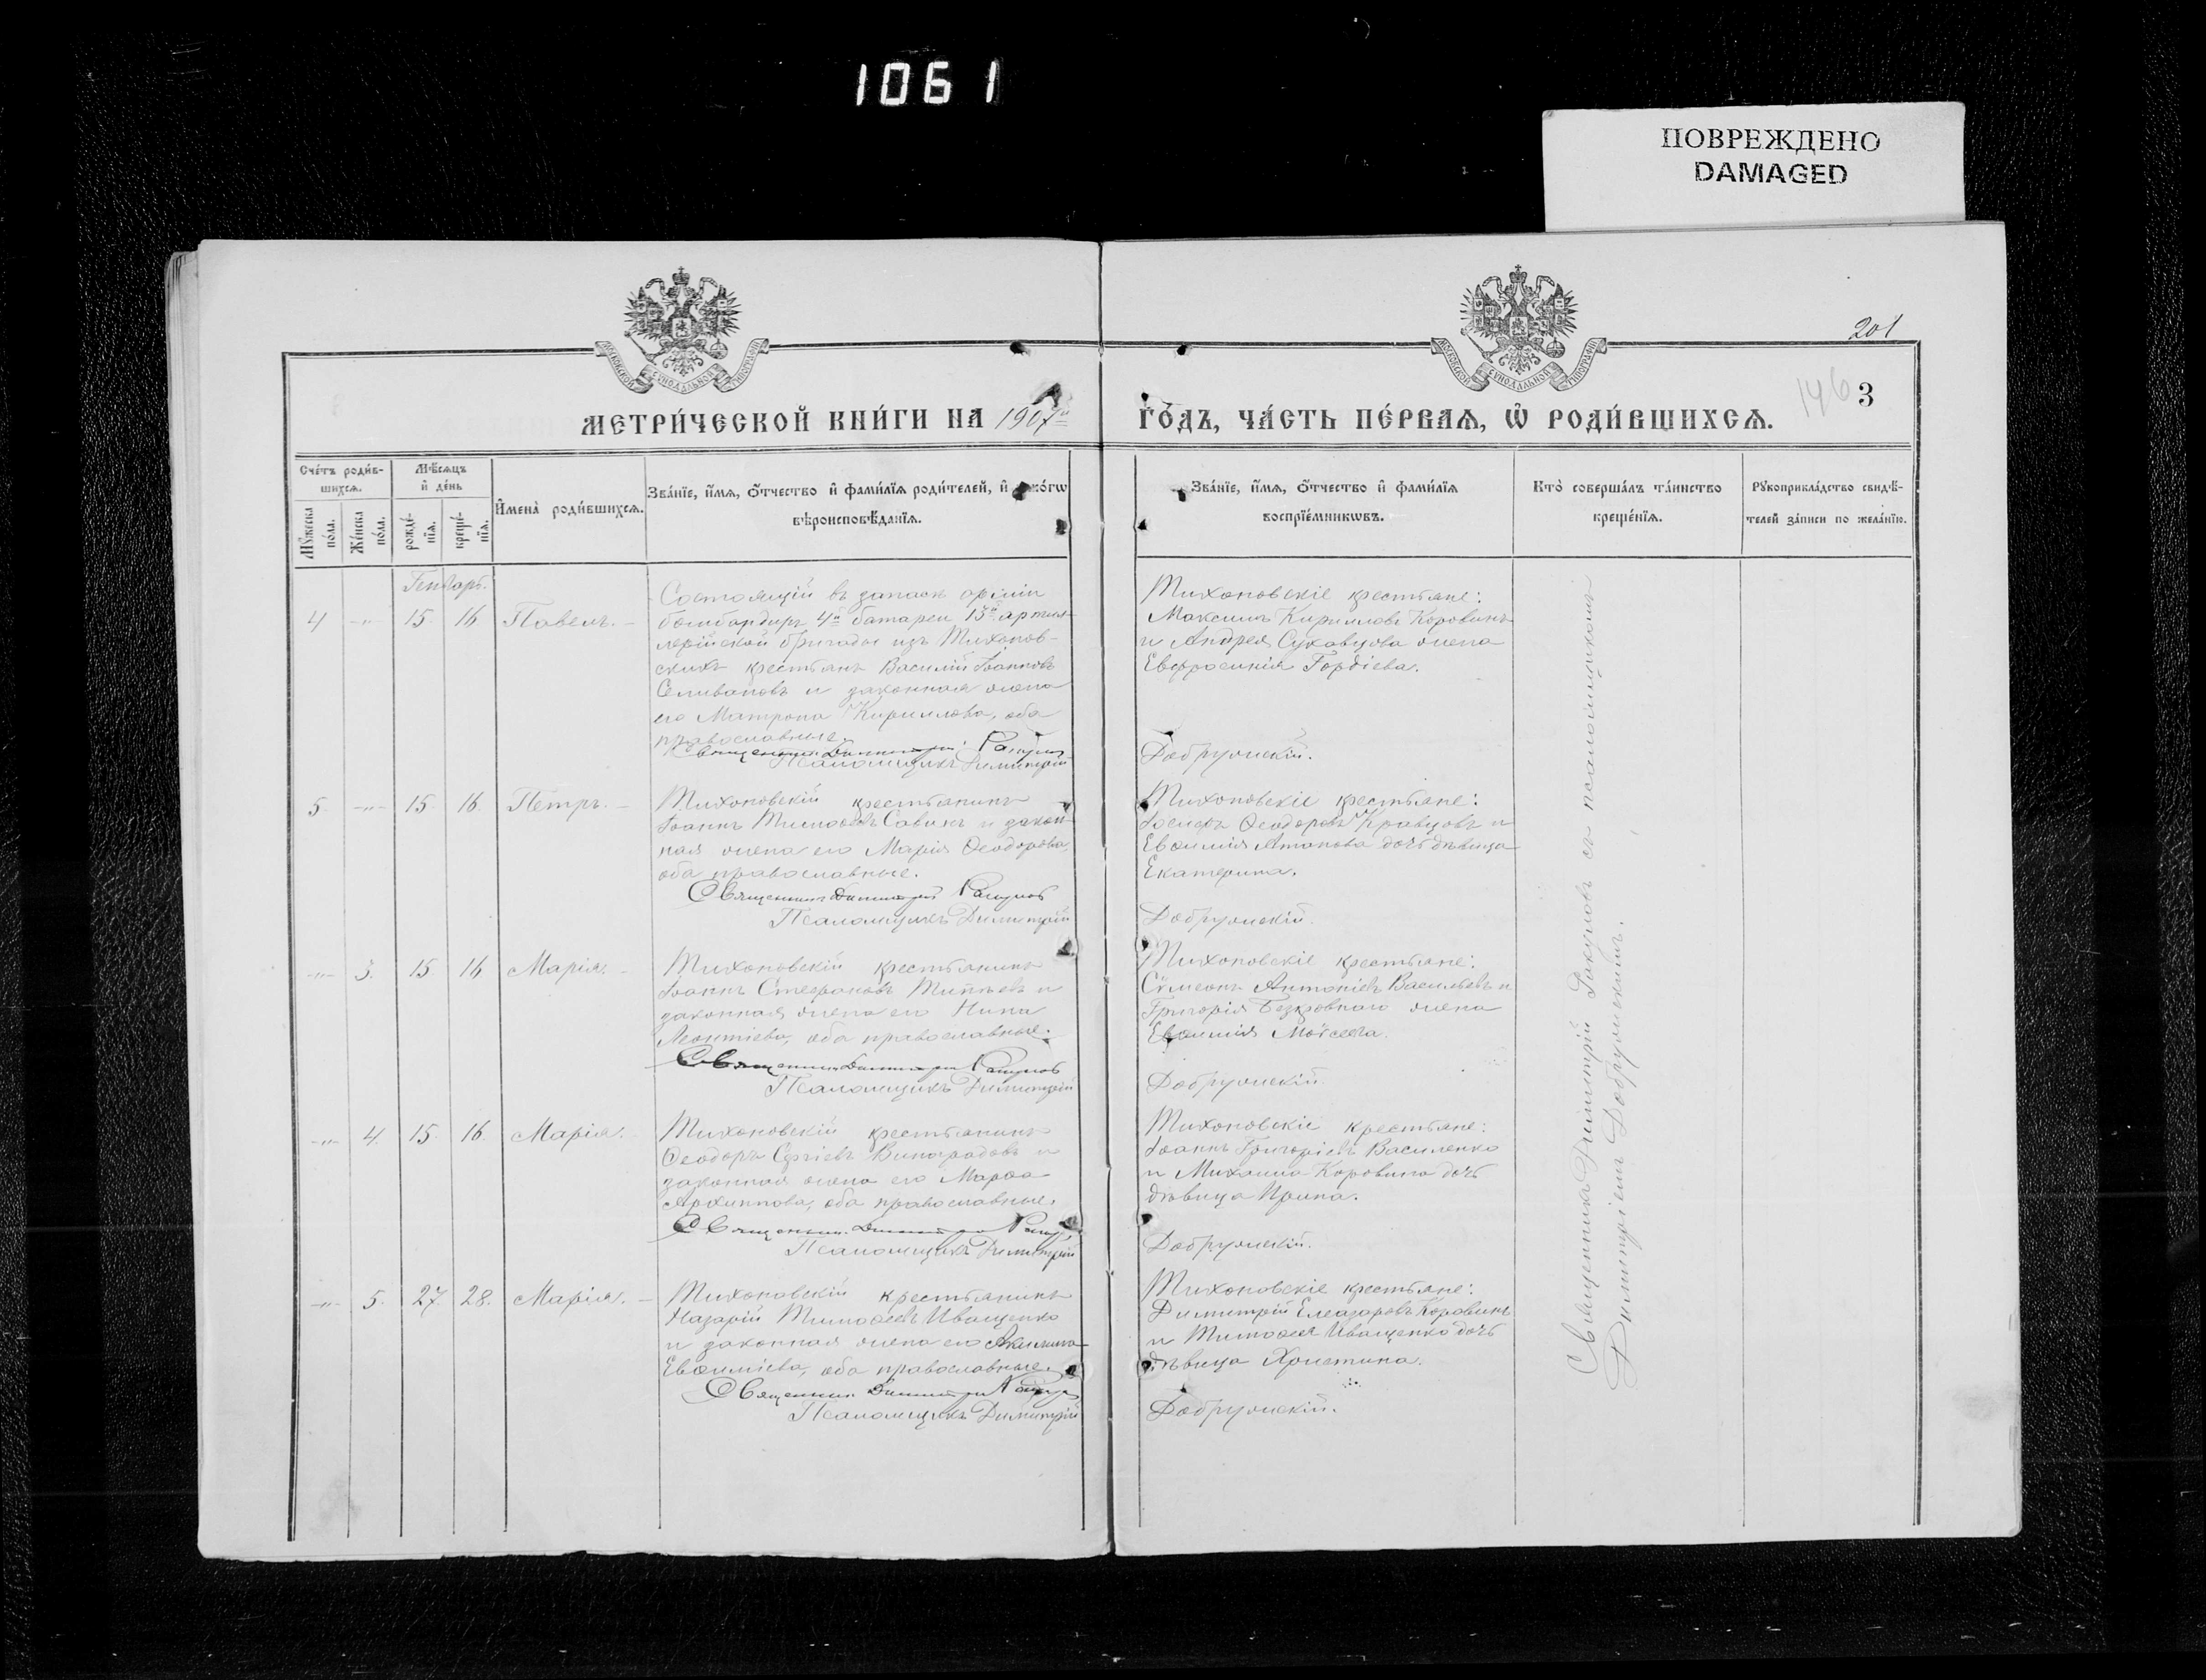 1061
ПОВРЕЖДЕНО
DAMAGED
201
146 3
МОСКОВСКОЙ СѴНОДАЛЬНОЙ ТИПОГРАФІИ
МОСКОВСКОЙ СѴНОДАЛЬНОЙ ТИПОГРАФІИ
МЕТРИ́ЧЕСКОЙ КНИ́ГИ НА 1907й
ГО́ДЪ, ЧА́СТЬ ПЕ́РВАѦ, Ѡ РОДИ́ВШИХСѦ.
Сче́тъ роди́в-
шихсѧ.
Мꙋжеска по́ла.
Же́нска по́ла.
Мѣ́сѧцъ
и҆ де́нь
рожде́-
нїѧ.
креще́-
нїѧ.
И҆мена̀ роди́вшихсѧ.
Зва́нїе, и҆́мѧ, ѻ҆́тчество и҆ фами́лїѧ роди́телей, и҆ како́гѡ
вѣроисповѣ́данїѧ.
Зва́нїе, и҆́мѧ, ѻ҆́тчество и҆ фами́лїѧ
воспрїе́мникѡвъ.
Кто̀ соверша́лъ та́инство
креще́нїѧ.
Рꙋкоприкла́дство свидѣ́-
телей за́писи по жела́нїю.
Генварь.
4 -„- 15. 16 Павелъ. -
Состоящій въ запасѣ арміи
бомбардиръ 4й батареи 13й артил-
лерійской бригады изъ Тихонов-
скихъ крестьянъ Василій Іоанновъ
Селивановъ и законная жена
его Матрона Кириллова, оба
православные.
Священникъ Димитрій Ракумов
Псаломщикъ Димитрій
Тихоновскіе крестьяне:
Максимъ Кирилловъ Коровинъ
и Андрея Сухавцова жена
Евфросинія Гордіева.
Добружскій.
5. -„- 15. 16. Петръ. -
Тихоновскій крестьянинъ
Іоаннъ Тимоѳеевъ Савинъ и закон-
ная жена его Марія Ѳеодорова,
оба православные.
Священникъ Димитрій
Псаломщикъ Димитрій
Тихоновскіе крестьяне:
Іосифъ Ѳеодоровъ Кравцовъ и
Евѳимія дочь дѣвица
Екатерина.
Добружскій.
-„- 3. 15. 16 Марія. -
Тихоновскій крестьянинъ
Іоаннъ Стефановъ и
законная жена его Нина
Леонтіева, оба православные.
Священникъ Димитрій
Псаломщикъ Димитрій
Тихоновскіе крестьяне:
Сѵмеонъ Антоніевъ Васильевъ и
Григорія Безкровнаго жена
Евѳимія Моѵсеева.
Добружскій.
-„- 4. 15. 16. Марія. -
Тихоновскій крестьянинъ
Ѳеодоръ Сергіевъ Виноградовъ и
законная жена его Марѳа
Архиппова, оба православные.
Священникъ Димитрій
Псаломщикъ Димитрій
Тихоновскіе крестьяне:
Іоаннъ Григоріевъ Василенко
и Михаила Коровина дочь
дѣвица Ирина.
Добружскій.
-„- 5. 27. 28. Марія. -
Тихоновскій крестьянинъ
Назарій Тимоѳеевъ Иващенко
и законная жена его Акилина
Евѳиміева, оба православные.
Священникъ Димитрій
Псаломщикъ Димитрій
Тихоновскіе крестьяне:
Димитрій Елеазаровъ Коровинъ
и Тимоѳея Иващенко дочь
дѣвица Христина.
Добружскій.
Священникъ Димитрій съ псаломщикомъ
Димитріемъ Добружскимъ.